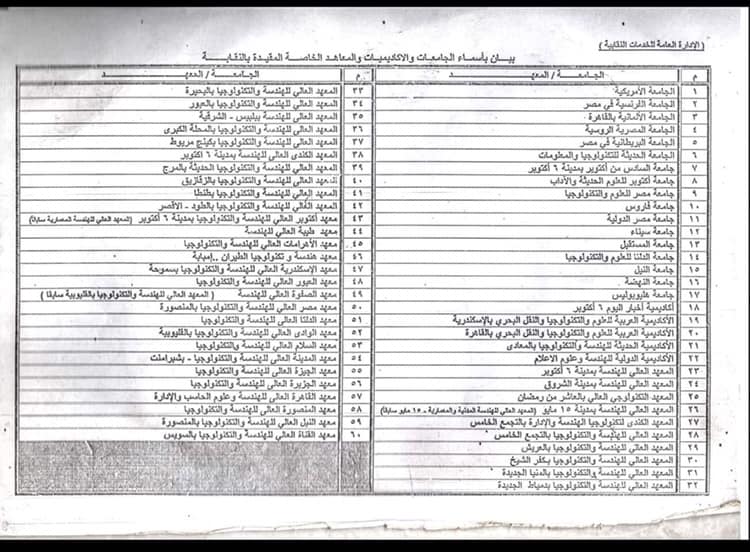 ( الإدارة العامة للخدمات النقابية )
بيان بأسماء الجامعات والاكاديميات والمعاهد الخاصة المقيدة بالنقابة
م الجامعة / المعهد
١ الجامعة الأمريكية
٢ الجامعة الفرنسية في مصر
٣ الجامعة الألمانية بالقاهرة
٤ الجامعة المصرية الروسية
٥ الجامعة البريطانية في مصر
٦ الجامعة الحديثة للتكنولوجيا والمعلومات
٧ جامعة السادس من أكتوبر بمدينة ٦ أكتوبر
٨ جامعة أكتوبر للعلوم الحديثة والآداب
٩ جامعة مصر للعلوم والتكنولوجيا
١٠ جامعة فاروس
١١ جامعة مصر الدولية
١٢ جامعة سيناء
١٣ جامعة المستقبل
١٤ جامعة الدلتا للعلوم والتكنولوجيا
١٥ جامعة النيل
١٦ جامعة النهضة
١٧ جامعة هليوبوليس
١٨ أكاديمية أخبار اليوم ٦ أكتوبر
١٩ الأكاديمية العربية للعلوم والتكنولوجيا والنقل البحري بالإسكندرية
٢٠ الأكاديمية العربية للعلوم والتكنولوجيا والنقل البحري بالقاهرة
٢١ الأكاديمية الحديثة للهندسة والتكنولوجيا بالمعادى
٢٢ الأكاديمية الدولية للهندسة وعلوم الاعلام
٢٣ المعهد العالي للهندسة بمدينة ٦ أكتوبر
٢٤ المعهد العالي للهندسة بمدينة الشروق
٢٥ المعهد التكنولوجي العالي بالعاشر من رمضان
٢٦ المعهد العالي للهندسة بمدينة ١٥ مايو (المعهد العالي للهندسة المدنية والمعمارية - ١٥ مايو سابقا)
٢٧ المعهد الكندى لتكنولوجيا الهندسة والإدارة بالتجمع الخامس
٢٨ المعهد العالي للهندسة والتكنولوجيا بالتجمع الخامس
٢٩ المعهد العالي للهندسة والتكنولوجيا بالعريش
٣٠ المعهد العالي للهندسة والتكنولوجيا بكفر الشيخ
٣١ المعهد العالي للهندسة والتكنولوجيا بالمنيا الجديدة
٣٢ المعهد العالي للهندسة والتكنولوجيا بدمياط الجديدة
م الجامعة / المعهد
٣٣ المعهد العالي للهندسة والتكنولوجيا بالبحيرة
٣٤ المعهد العالي للهندسة والتكنولوجيا بالعبور
٣٥ المعهد العالي للهندسة ببلبيس - الشرقية
٣٦ المعهد العالي للهندسة والتكنولوجيا بالمحلة الكبرى
٣٧ المعهد العالي للهندسة والتكنولوجيا بكينج مريوط
٣٨ المعهد الكندى العالي للهندسة بمدينة ٦ اكتوبر
٣٩ المعهد العالي للهندسة والتكنولوجيا الحديثة بالمرج
٤٠ المعهد العالي للهندسة والتكنولوجيا بالزقازيق
٤١ المعهد العالي للهندسة والتكنولوجيا بطنطا
٤٢ المعهد العالي للهندسة والتكنولوجيا بالطود - الأقصر
٤٣ معهد أكتوبر العالي للهندسة والتكنولوجيا بمدينة ٦ أكتوبر (المعهد العالي للهندسة المعمارية سابقا)
٤٤ معهد طيبة العالي للهندسة
٤٥ معهد الأهرامات العالي للهندسة والتكنولوجيا
٤٦ معهد هندسة و تكنولوجيا الطيران ..إمبابة
٤٧ معهد الإسكندرية العالي للهندسة والتكنولوجيا بسموحة
٤٨ معهد العبور العالي للهندسة والتكنولوجيا
٤٩ معهد الصفوة العالي للهندسة ( المعهد العالي للهندسة والتكنولوجيا بالقليوبية سابقا )
٥٠ معهد مصر العالي للهندسة والتكنولوجيا بالمنصورة
٥١ معهد الدلتا العالي للهندسة والتكنولوجيا
٥٢ معهد الوادى العالي للهندسة والتكنولوجيا بالقليوبية
٥٣ معهد السلام العالي للهندسة والتكنولوجيا
٥٤ معهد المدينة العالي للهندسة والتكنولوجيا - بشبرامنت
٥٥ معهد الجيزة العالي للهندسة والتكنولوجيا
٥٦ معهد الجزيرة العالي للهندسة والتكنولوجيا
٥٧ معهد القاهرة العالي للهندسة وعلوم الحاسب والإدارة
٥٨ معهد المنصورة العالي للهندسة والتكنولوجيا
٥٩ معهد النيل العالي للهندسة والتكنولوجيا بالمنصورة
٦٠ معهد القناة العالي للهندسة والتكنولوجيا بالسويس